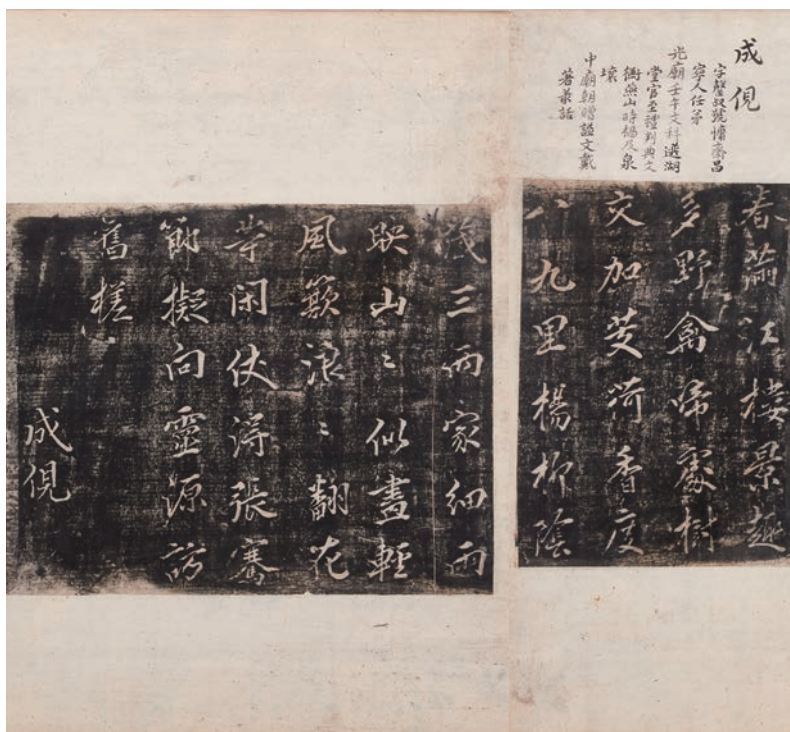 成俔
字磬叔號慵齋昌
寧人任弟
光廟壬午文科選湖
堂官至禮判典文
衡燕山時禍及泉
壤
中廟朝贈諡文戴
著叢話
春滿江樓景趣
多野禽啼處樹
交加芰荷香度
八九里楊柳陰
濃三兩家細雨
映山〻似畫輕
風簸浪〻翻花
等閑仗得張騫
節擬向靈源訪
舊槎
成俔